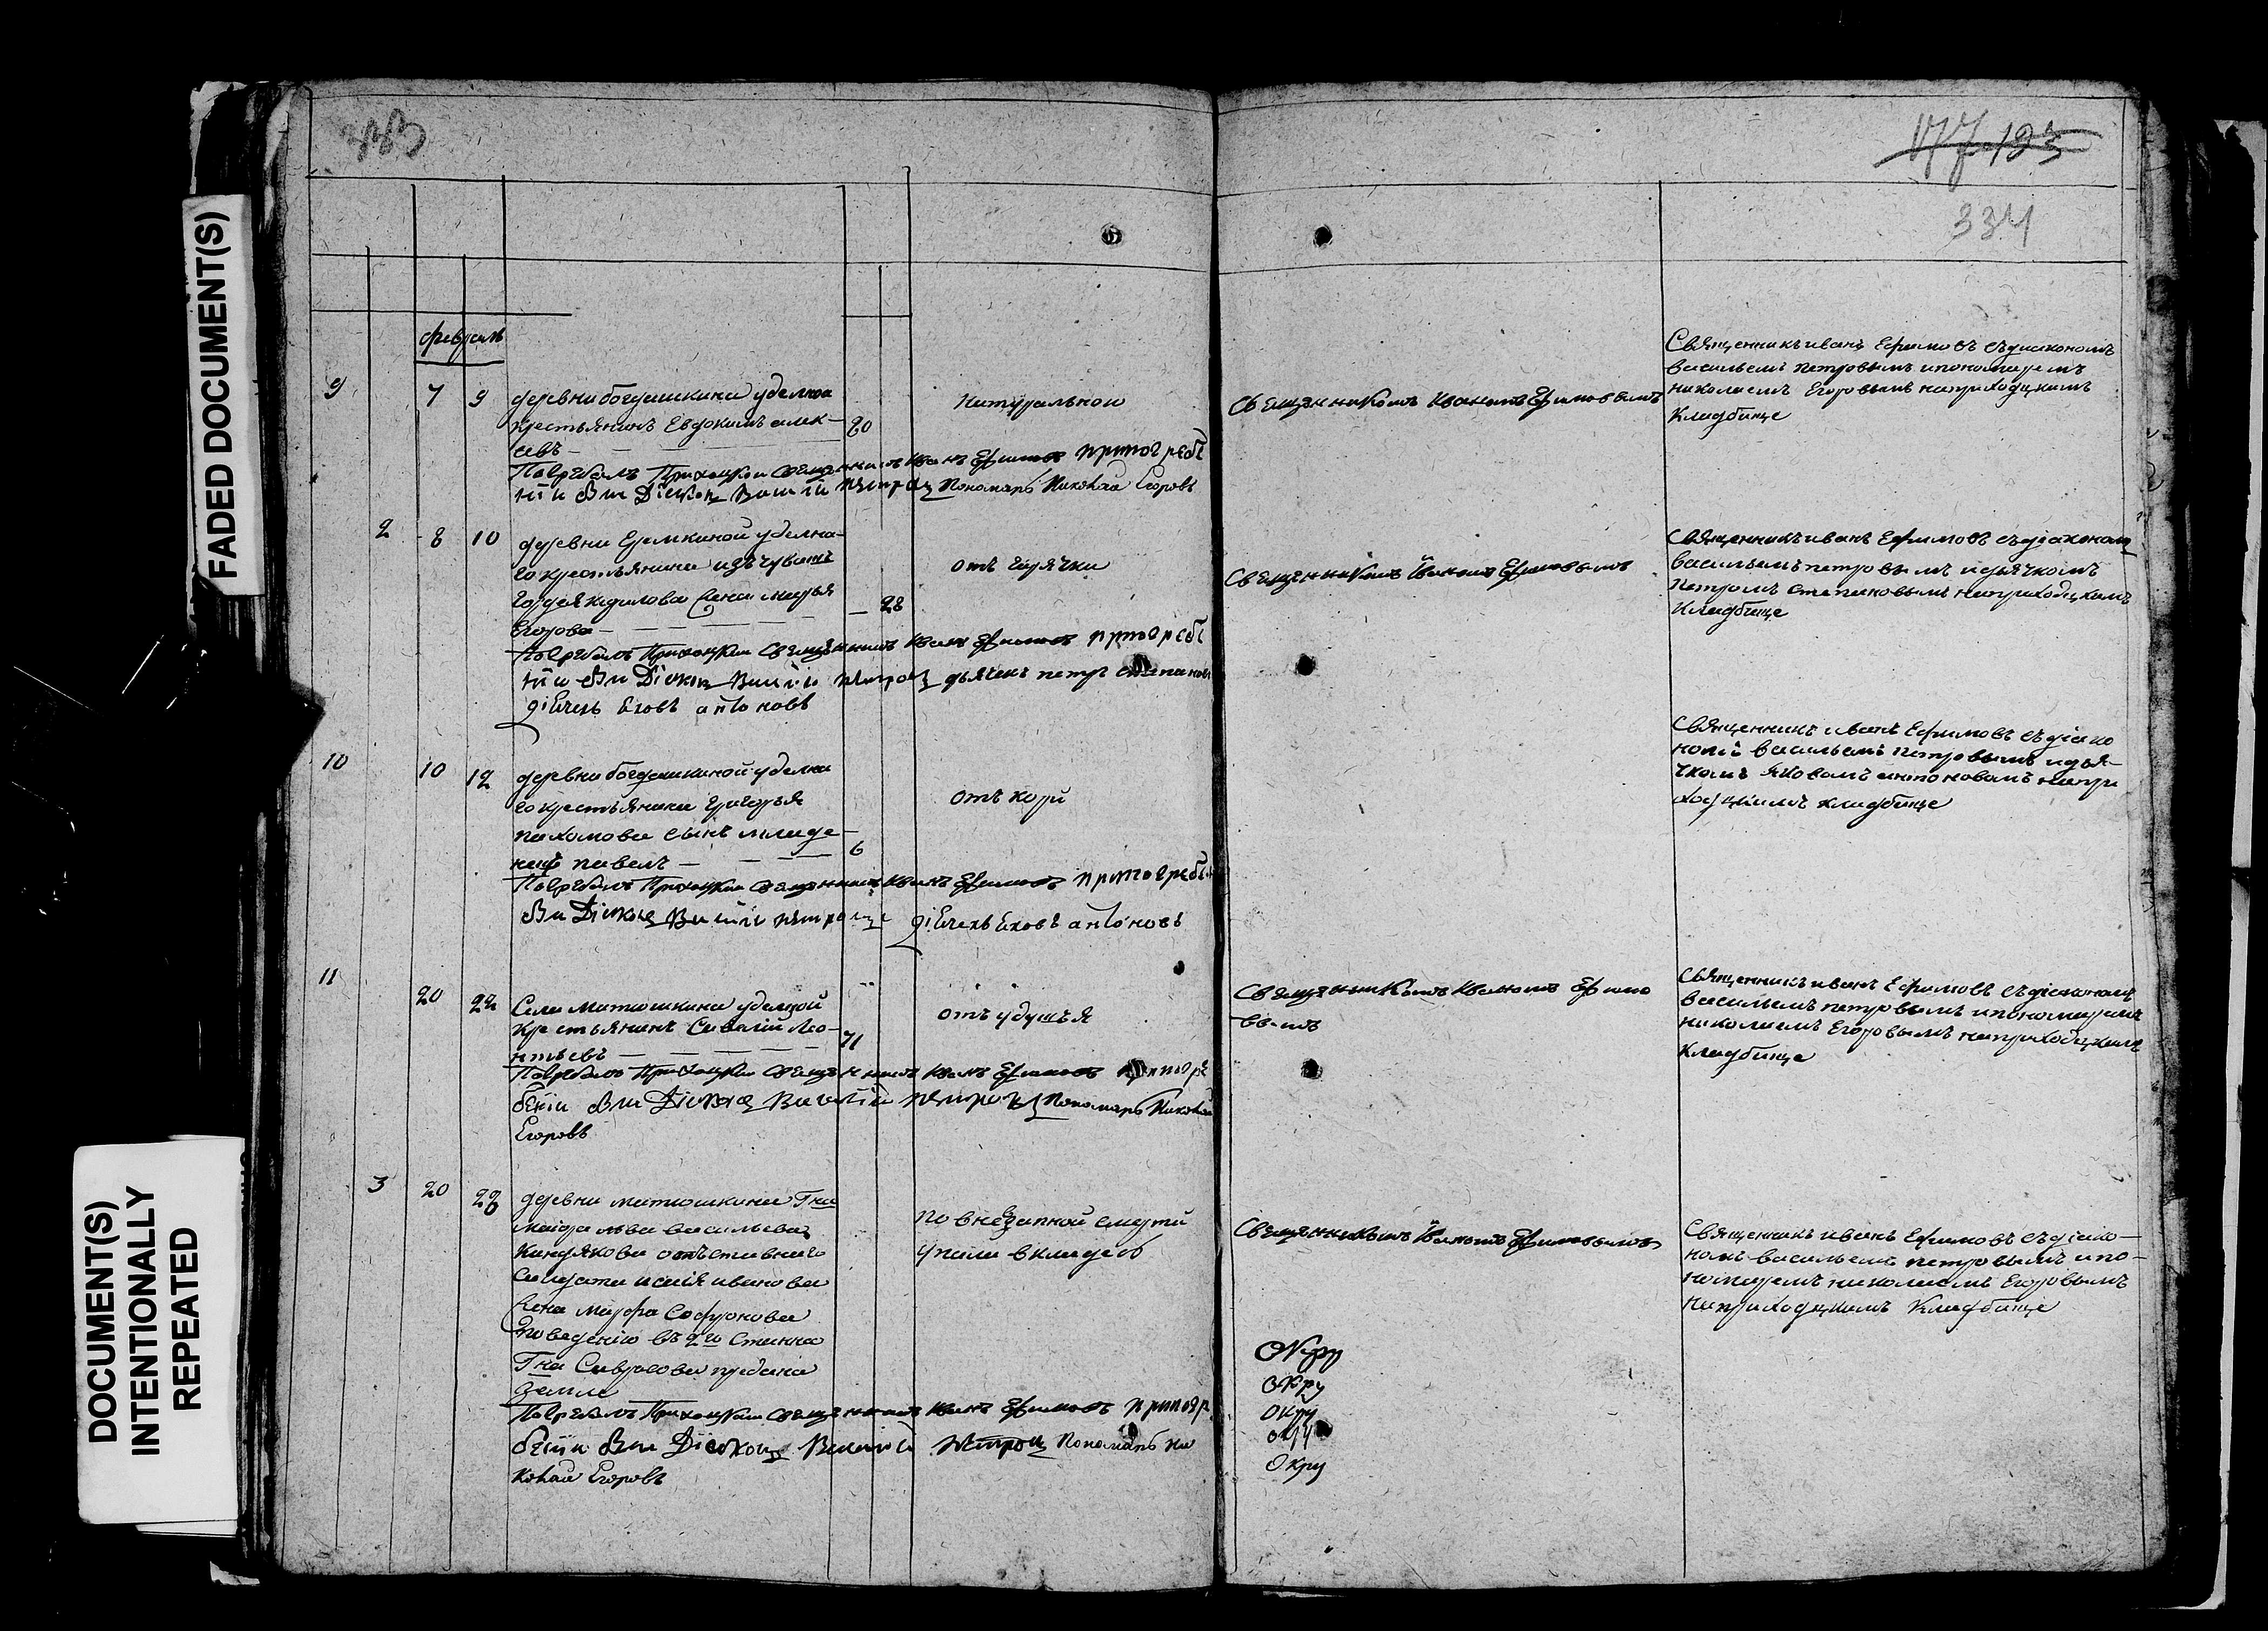 333
177. 193
334
FADED DOCUMENT(S)
DOCUMENT(S)
INTENTIONALLY
REPEATED
февраль
9 7 9 деревни богдашкина уделнои
крестьянинъ Евдокимъ алек-
сѣевъ — 80
натуральнои
Священникомъ Иваномъ Ефимовымъ
Священникъ иванъ Ефимовъ съ диакономъ
васильемъ петровымъ и пономаремъ
николаемъ Егоровымъ на приходцкимъ
кладбище
Погребалъ Приходцкои священникъ Иванъ Ефимовъ при погребе
нiи был Дiакон Василiй Петров Пономарь Николаи Егоровъ
2 8 10 деревни Еремкиной уделна-
го крестьянина изъ чувашъ
гордея кирилова жена марья
Егорова — 28
отъ горячки
Священникомъ Иваномъ Ефимовымъ
Священникъ иванъ Ефимовъ съ дiакономъ
васильемъ петровымъ и дьячкомъ
петромъ степановымъ на приходцкимъ
кладбище
Погребалъ Приходцкои священникъ Иванъ Ефимовъ при погребе
нiи был Дiакон Василiй Петров дьячекъ петръ степановъ
дiячекъ Яковъ антоновъ
10 10 12 деревни богдашкиной уделна
го крестьянина григорья
пахомова сынъ младе-
нецъ павелъ — 6
отъ кори
Священникъ иванъ Ефимовъ съ дiако
номъ васильемъ петровымъ и дья-
чкомъ яковомъ антоновымъ на при
ходцкимъ кладбище
Погребалъ Приходцкои священникъ Иванъ Ефимовъ при погребенiи
был Дiакон Василiй Петров дiячекъ Яковъ антоновъ
11 20 22 Села матюшкина уделной
крестьянинъ Савелiй Лео-
нтьевъ — 71
отъ удушья
Священникомъ Иваномъ Ефимо
вымъ
Священникъ иванъ Ефимовъ съ дiакономъ
васильемъ петровымъ и пономаремъ
николаемъ Егоровымъ на приходцкимъ
кладбище
Погребалъ Приходцкои священникъ Иванъ Ефимовъ при погре
бенiи был Дiакон Василiй Петров Пономарь Николаи
Егоровъ
3 20 28 деревни матюшкина Гна
маiора льва васильева
киндякова отставнаго
салдата исаiя иванова
жена марфа Софронова
по веденiю въ 2го Станна
Гна Саврасова предана
земле
по внезапной смерти
упала в кладесь
Священникомъ Иваномъ Ефимовымъ
Священникъ иванъ Ефимовъ съ дiако-
номъ васильемъ петровымъ и по-
номаремъ николаемъ Егоровымъ
на приходцкимъ Кладбище
Погребалъ Приходцкои священникъ Иванъ Ефимовъ при погр
бенiи был Дiакон Василiй Петров Пономарь Ни
колаи Егоровъ
Окру
окру
окру
окру
Окру